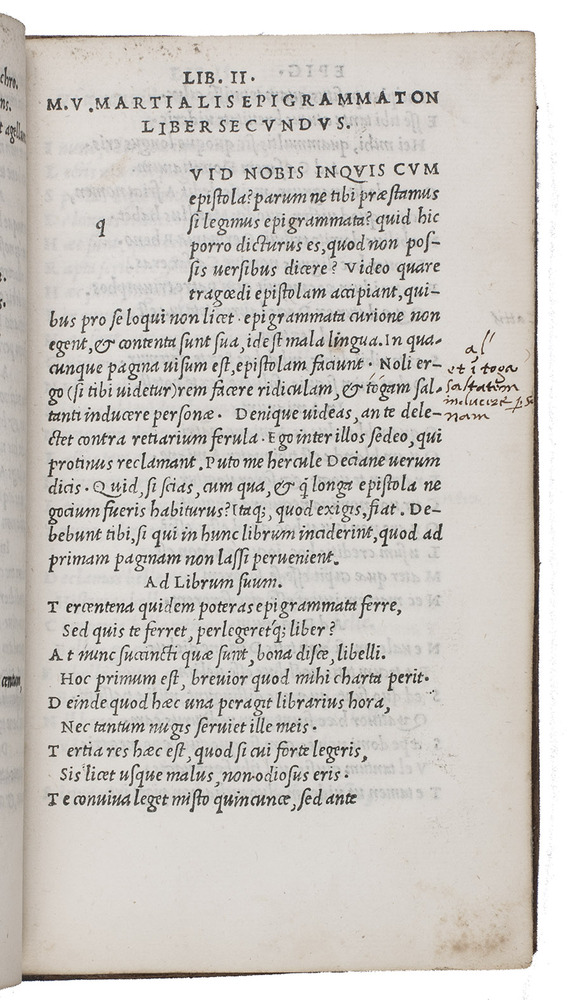 LIB. II.
M.V.MARTIALIS EPIGRAMMATON
LIBER SECVNDVS.
q VID NOBIS INQVIS CVM
epistola? parum ne tibi præstamus
si legimus epigrammata? quid hic
porro dicturus es, quod non pos-
sis uersibus dicere? Video quare
tragœdi epistolam accipiant, qui-
bus pro se loqui non licet. epigrammata curione non
egent, & contenta sunt sua, idest mala lingua. In qua-
cunque pagina uisum est, epistolam faciunt. Noli er-
go (si tibi videtur) rem facere ridiculam, & togam sal-
tanti inducere personæ. Denique uideas, an te dele-
ctet contra retiarium ferula. Ego inter illos sedeo, qui
protinus reclamant. Puto me hercule Deciane uerum
dicis. Quid, si scias, cum qua, & q̃ longa epistola ne
gocium fueris habiturus? Itaq;, quod exigis, fiat. De-
bebunt tibi, si qui in hunc librum inciderint, quod ad
primam paginam non lassi peruenient.
Ad Librum suum.
T ercentena quidem poteras epigrammata ferre,
Sed quis te ferret, perlegeret'q; liber?
A t nunc succincti quæ sunt, bona disce, libelli.
Hoc primum est, breuior quod mihi charta perit.
D einde quod hæc una peragit librarius hora,
Nec tantum nugis seruiet ille meis.
T ertia res hæc est, quod si cui forte legeris,
Sis licet usque malus, non odiosus eris.
T e conuiua leget misto quincunce, sed ante
al'
et ī toga
saltatum
inducere
nam
chro.
ns.
t agellum